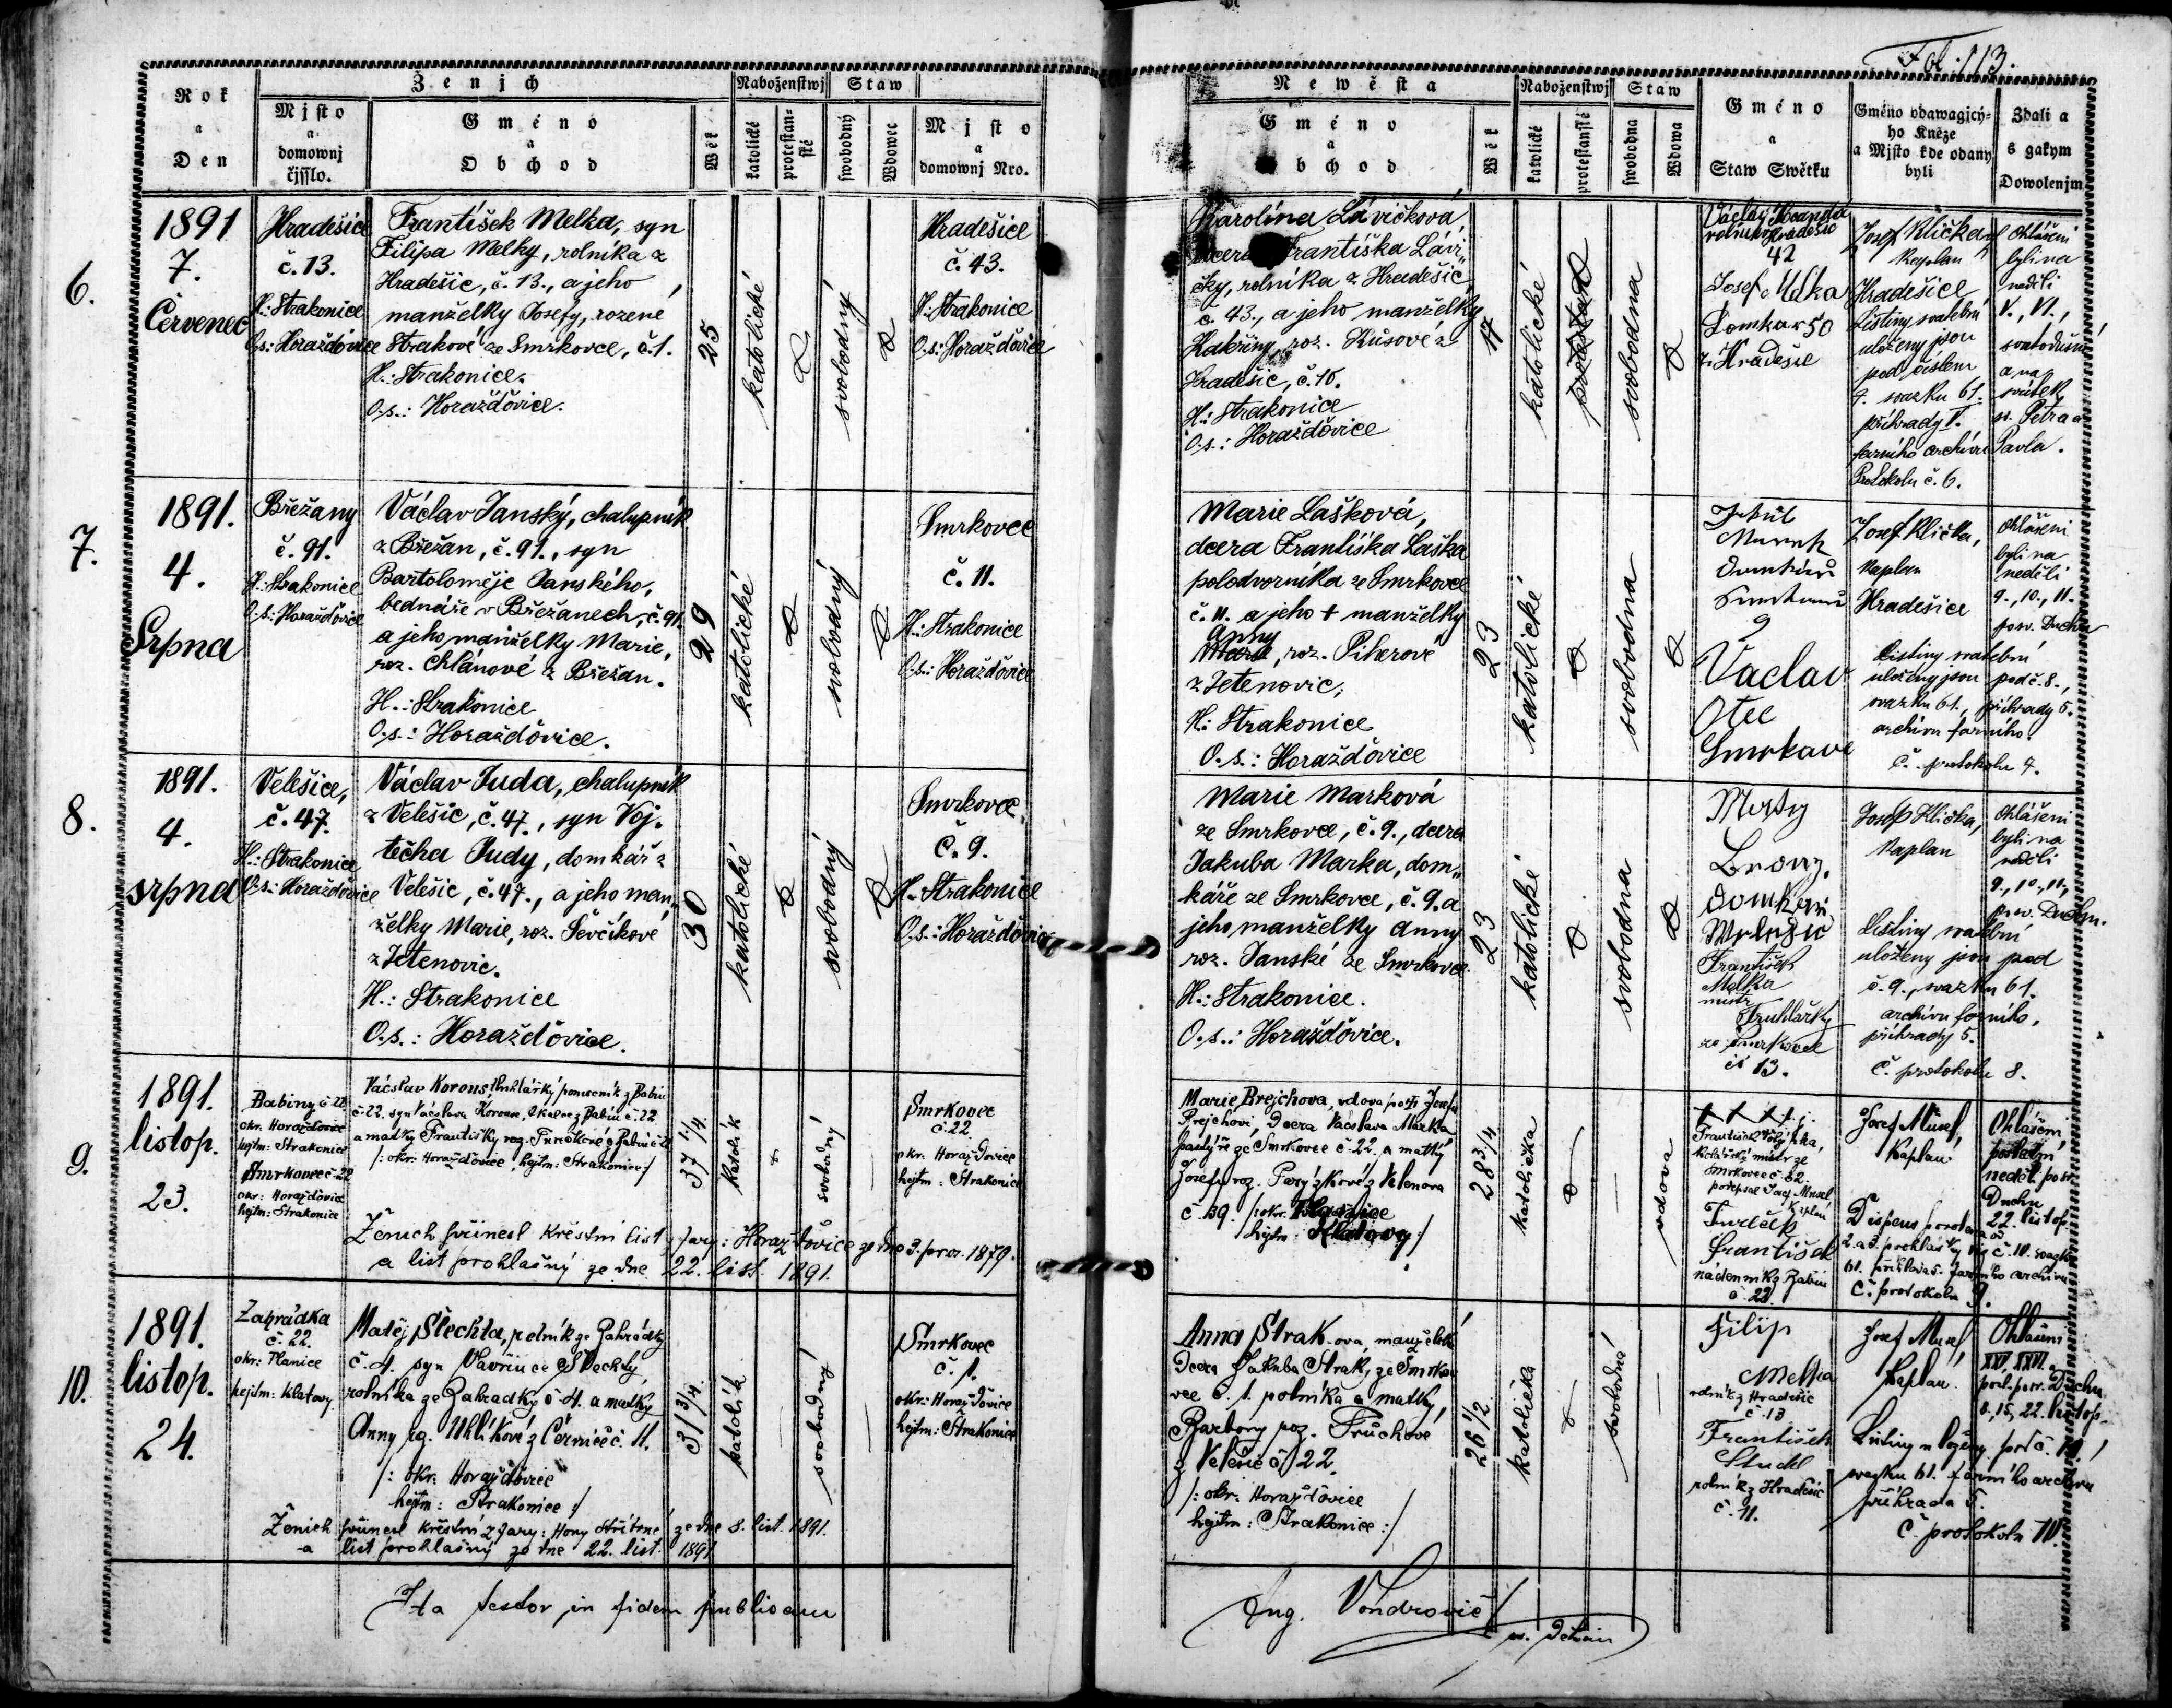 Fol. 113.
Ženich
Náboženstwj
Staw
Rok
a
Den
Mjsto
a
domownj
čjsslo.
Gméno
a
Obchod
Wěk
katolické
protestan-
ské
swobodný
Wdowec
Mjsto
a
domownj Nro.
Newěsta
Náboženstwj
Staw
Gméno
a
Obchod
Wěk
katolické
protestanské
swobodna
Wdowa
Gméno
a
Staw Swětku
Gméno odawagjcý-
ho Kněze
a Mjsto kde odany
byli
Zdali a
s gakym
Dowolenjm
6.
1891
7.
Červenec
Hradešice
č. 13.
H.: Strakonice
O.s.: Horažďovice
František Melka, syn
Filipa Melky, rolníka z
Hradešic, č. 13., a jeho
manželky Josefy, rozené
Strakové ze Smrkovce, č. 1.
H.: Strakonice.
O.s.: Horažďovice.
25
katolické
svobodný
Hradešice
č. 43.
H.: Strakonice
O.s.: Horažďovice
Karolína Lávičková,
dcera Františka Lávi„
čky, rolníka z Hradešic,
č. 43., a jeho manželky
Kateřiny, roz. Kůsové z
Hradešic, č. 16.
H.: Strakonice
O.s.: Horažďovice
17
katolické
svobodna
Václav
rolník z Hradešic
42
Josef Melka
Domkar 50
z Hradešic
Josef Klička,
Kaplan
Hradešice
Listiny svatební
uloženy jsou
pod číslem
7. svazku 61.
přihrady V.
farního archivu
Protokolu č. 6.
Ohlášeni
byli na
neděli
V., VI.,
svatodušní
a na
svátek
sv. Petra a
Pavla.
7.
1891.
4.
Srpna
Břežany
č. 91.
H.: Strakonice
O.s.: Horažďovice
Václav Janský, chalupník
z Břežan, č. 91., syn
Bartoloměje Janského,
bednáře v Břežanech, č. 91.
a jeho manželky Marie,
roz. Chlánové z Břežan.
H.: Strakonice
O.s.: Horažďovice.
29
katolické
svobodný
Smrkovec
č. 11.
H.: Strakonice
O.s.: Horažďovice
Marie Lašková,
dcera Františka Laška
polodvorníka ze Smrkovce
č. 11. a jeho + manželky
Anny
Marie, roz. Piherové
z Jetenovic,
H.: Strakonice
O.s.: Horažďovice
23
katolické
svobodna
Marek
9
Vaclav
Otec
Josef Klička,
Kaplan
Hradešice
Ohlášeni
byli na
neděli
9., 10., 11.
posv. Duchu
Listiny svatební
uloženy jsou pod č. 8.,
svazku 61., přihrady 5.
archivu farního.
Č. protokolu 7.
8.
1891.
4.
srpna
Velešice,
č. 47.
H.: Strakonice
O.s.: Horažďovice
Václav Juda, chalupník
z Velešic, č. 47., syn Voj„
těcha Judy, domkář z
Velešic, č. 47., a jeho man„
želky Marie, roz. Ševčíkové
z Jetenovic.
H.: Strakonice
O.s.: Horažďovice.
30
katolické
svobodný
Smrkovec,
č. 9.
H. Strakonice
O.s.: Horažďovice
Marie Marková
ze Smrkovce, č. 9., dcera
Jakuba Marka, dom„
káře ze Smrkovce, č. 9. a
jeho manželky Anny
roz. Janské ze Smrkovce.
H.: Strakonice.
O.s.: Horažďovice.
23
katolické
svobodna
František
Melka
mistr
Truhlářský
ze Smrkovce
čís 13.
Josef Klička,
Kaplan
Ohlášeni
byli na
neděli
9., 10., 11.,
posv. Duchu.
Listiny svatební
uloženy jsou pod
č. 9., svazku 61.
archivu farního,
přihrady 5.
Č. protokolu 8.
9.
1891.
listop.
23.
Babiny č. 22
okr: Horažďovice
hejtm: Strakonice
Smrkovec č. 22
okr: Horažďovice
hejtm: Strakonice
Václav Korous, truhlářský pomocník z Babin
č. 22. syn Václava Korouse, tkalce z Babin č. 22
a matky Františky roz. Turečkové z Babin č. 22
/: okr: Horažďovice, hejtm: Strakonice :/
37 1/4.
katolík
svobodný
Smrkovec
č. 22.
okr: Horažďovice
hejtm: Strakonice
Ženich přinesl křestní list z fary: Horažďovice ze dne 3. pros. 1879.
a list prohlašný ze dne 22. list. 1891.
Marie Brejchova, vdova po Josefu
Brejchovi, Dcera Václava Marka
pastýře ze Smrkovce č. 22. a matky
Josefy roz. Parýzkové z Velenova
č. 39. /: okr. Planice
hejtm: Klatovy :/
28 3/4
katolička
vdova
+ + + +
František
kolářský mistr ze
Smrkovce č. 32.
podepsal Josef Musel,
Kaplan
František
nádenník z Babin
č. 22.
Josef Musel,
Kaplan
Ohlášeni
poslední
neděli posv.
Duchu
22. listop.
2. a 3. prohlášky viz č. 10. svazku
61. přihrada 5. farního archivu
Č. protokolu 9.
10.
1891.
listop.
24.
Zahrádka
č. 22.
okr: Planice
hejtm: Klatovy
Matěj Šlechta, rolník ze Zahrádky
č. 4. syn Vavřince Šlechty,
rolníka ze Zahradky č. 4. a matky
Anny roz. Uhlíkové z Černíče č. 11.
/: okr: Horažďovice
hejtm: Strakonice :/
31 3/4
katolík
svobodný
Smrkovec
č. 1.
okr: Horažďovice
hejtm: Strakonice
Ženich přinesl křestní z fary: Hory Stříbrné ze dne 8. list. 1891.
a list prohlašný ze dne 22. list. 1891
Anna Strak-ova, manželská
Dcera Jakuba Straky, ze Smrkov
vce č. 1. rolníka a matky,
Barbory roz. Průchové
z Velešic č. 22.
/: okr: Horažďovice
hejtm: Strakonice :/
26 1/2
katolička
svobodná
Filip
Melka
rolník z Hradešic
č. 13
František
rolník z Hradešic
č. 11.
Josef Musel,
Kaplan.
Ohlášeni
XXV. XXVI. a
posl. posv. Duchu
8., 15., 22. listop.
Listiny uloženy pod č.
svazku 61. farního archivu
přihrada 5.
Č. protokolu 10.
Ita testor, in fidem publicam
Ing. Vondrovič